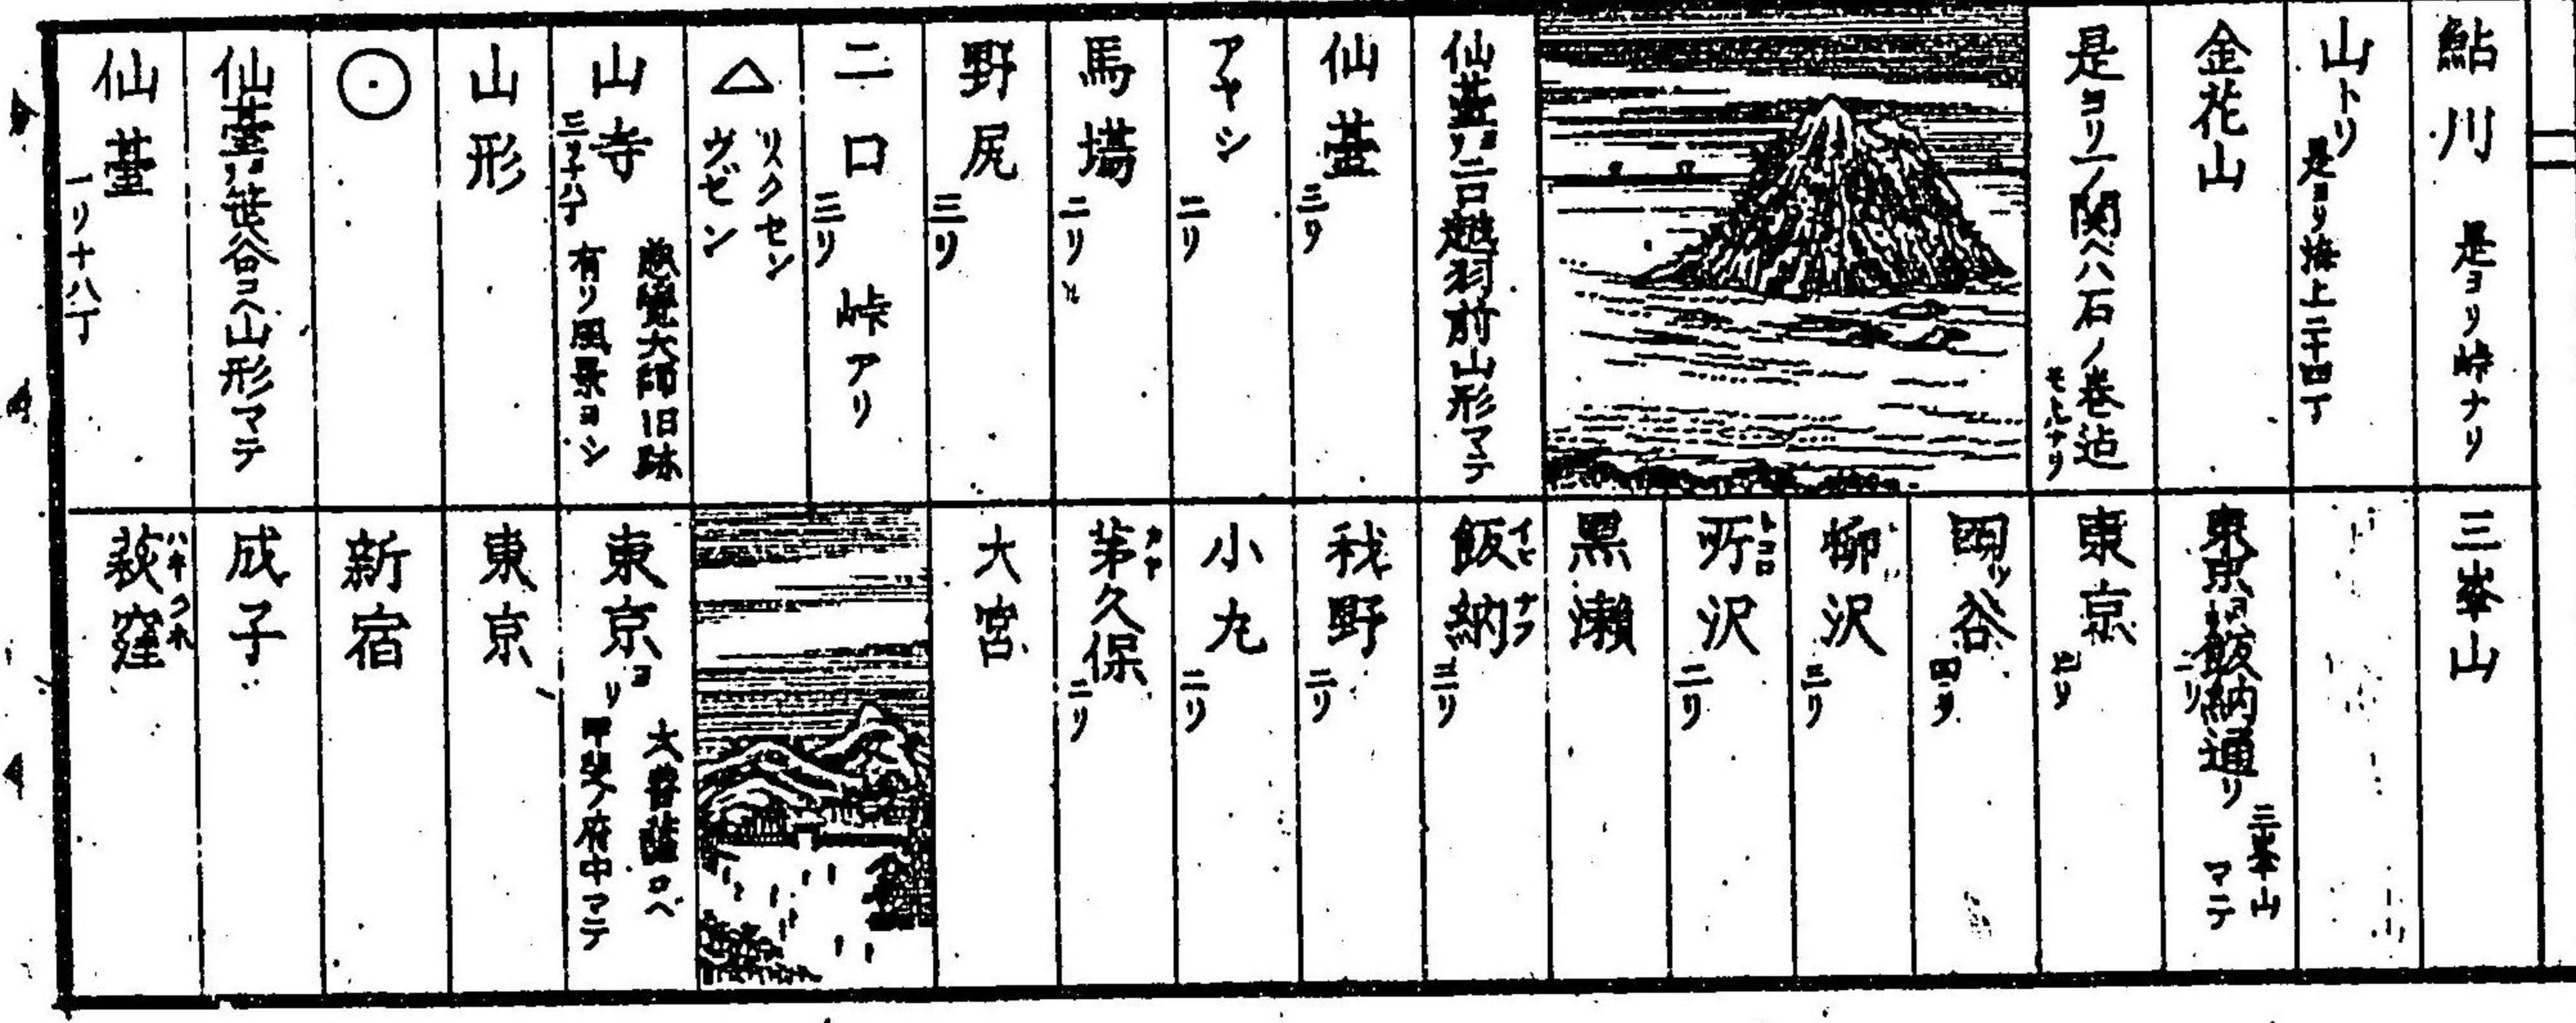 鮎川 是ヨリ峠ナリ
山トリ 是ヨリ海上二十四丁
金花山
是ヨリ一ノ関ヘハ石ノ巻迠
モトルナリ
仙䑓ヨリ二口越羽前山形マテ
仙䑓 三リ
アヤシ 二リ
馬塲 二リ
野尻 三リ
二口 三リ 峠アリ
△ リクセン
ウゼン
山寺 三リ十八丁 慈覚大師旧跡
有リ風景ヨシ
山形
仙䑓ヨリ笹谷コヘ山形マテ
仙䑓 一リ十八丁
三峯山
東京ヨリ飯納通リ 三峯山
マテ
東京
四ツ谷
柳沢 三リ
所沢 トコロ 二リ
黒瀬
飯納 イヒナフ 三リ
我野 二リ
小丸 二リ
茅久保 カヤ 二リ
大宮
東京ヨリ 大菩薩コヘ
甲斐ノ府中マテ
東京
新宿
成子
萩窪 ハギクボ